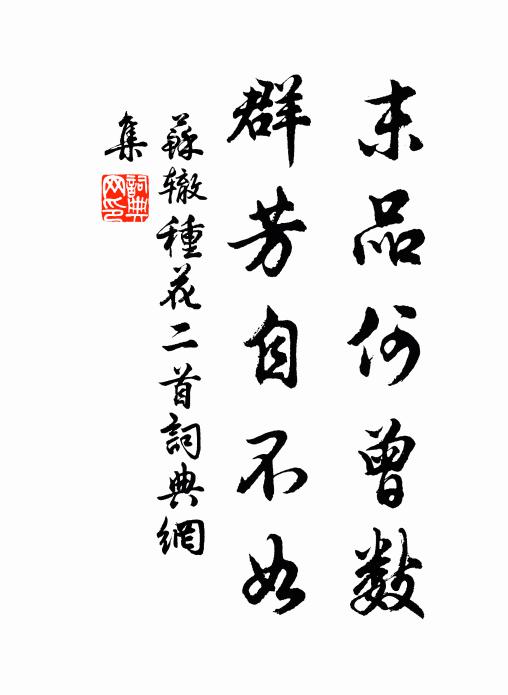 末品何曾數
群芳自不如
蘇辙種花二首詞典網
集
詞典
网印